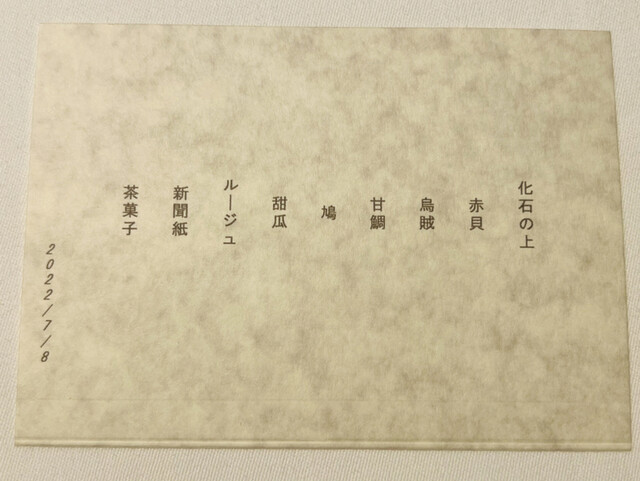 化石の上
赤貝
烏賊
甘鯛
鳩
甜瓜
ルージュ
新聞紙
茶菓子
2022/7/8